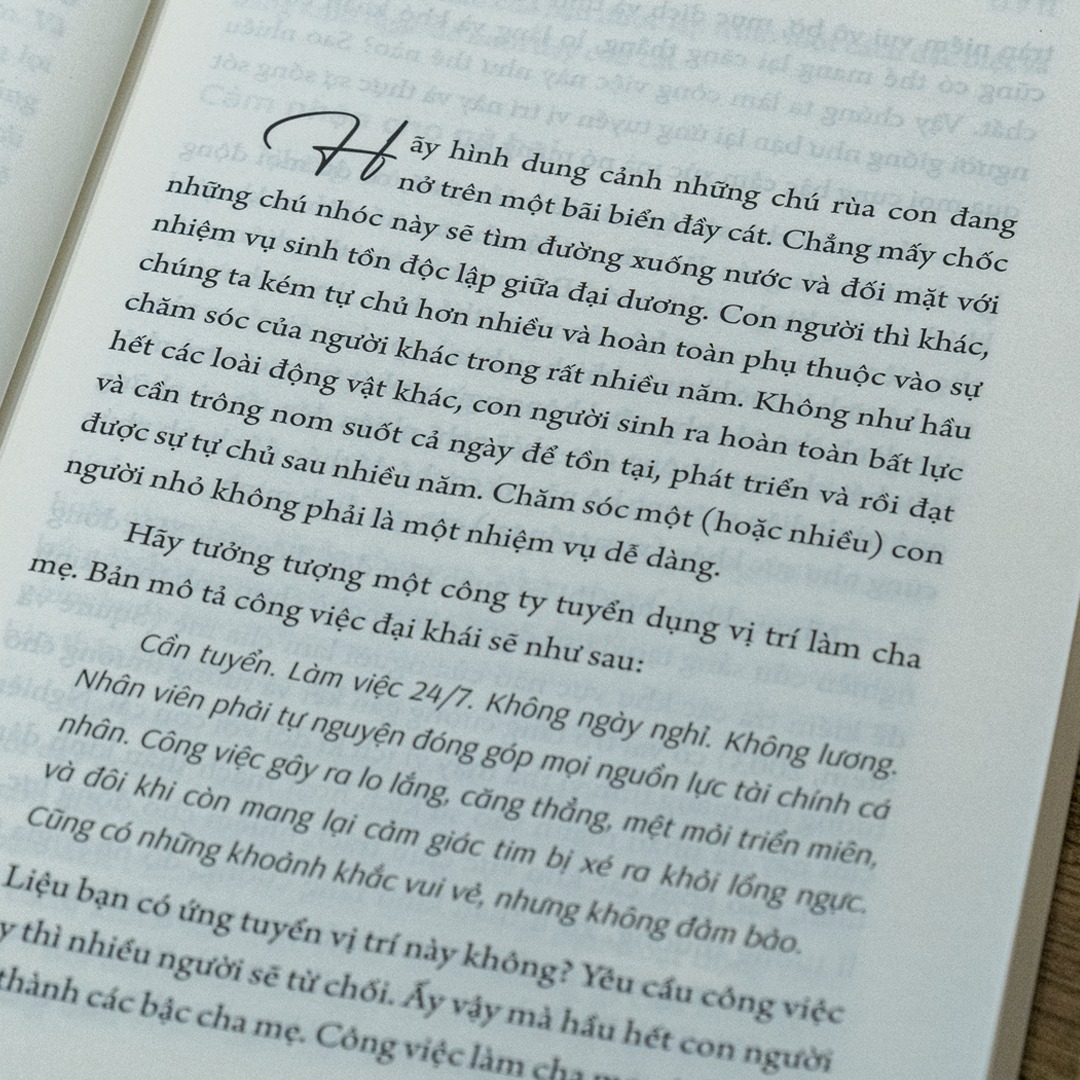 Hãy hình dung cảnh những chú rùa con đang
nở trên một bãi biển đầy cát. Chẳng mấy chốc
những chú nhóc này sẽ tìm đường xuống nước và đối mặt với
nhiệm vụ sinh tồn độc lập giữa đại dương. Con người thì khác,
chúng ta kém tự chủ hơn nhiều và hoàn toàn phụ thuộc vào sự
chăm sóc của người khác trong rất nhiều năm. Không như hầu
hết các loài động vật khác, con người sinh ra hoàn toàn bất lực
và cần trông nom suốt cả ngày để tồn tại, phát triển và rồi đạt
được sự tự chủ sau nhiều năm. Chăm sóc một (hoặc nhiều) con
người nhỏ không phải là một nhiệm vụ dễ dàng.
Hãy tưởng tượng một công ty tuyển dụng vị trí làm cha
mẹ. Bản mô tả công việc đại khái sẽ như sau:
Cần tuyển. Làm việc 24/7. Không ngày nghỉ. Không lương.
Nhân viên phải tự nguyện đóng góp mọi nguồn lực tài chính cá
nhân. Công việc gây ra lo lắng, căng thẳng, mệt mỏi triền miên,
và đôi khi còn mang lại cảm giác tim bị xé ra khỏi lồng ngực.
Cũng có những khoảnh khắc vui vẻ, nhưng không đảm bảo.
Liệu bạn có ứng tuyển vị trí này không? Yêu cầu công việc
y thì nhiều người sẽ từ chối. Ấy vậy mà hầu hết con người
thành các bậc cha mẹ. Công việc làm cha